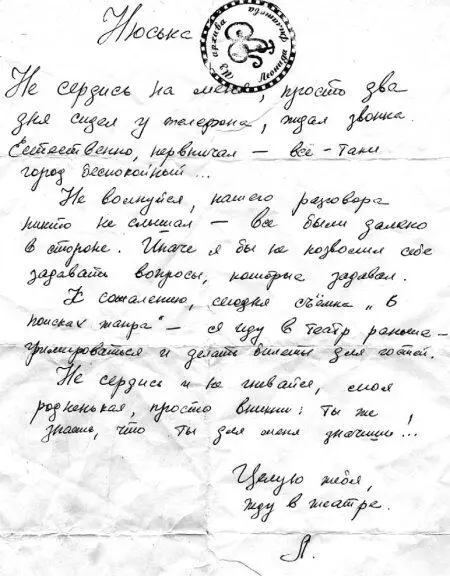 Нюська
Из архива Леонида Филатова
Не сердись на меня, просто два
дня сидел у телефона, ждал звонка.
Естественно, нервничал – всё-таки
город беспокойный...
Не волнуйся, нашего разговора
никто не слышал – все были далеко
в стороне. Иначе я бы не позволил себе
задавать вопросы, которые задавал.
К сожалению, сегодня съёмка „В
поисках жанра" – я иду в театр раньше –
гримироваться и делать билеты для гостей.
Не сердись и не гневайся, моя
родненькая, просто вникни: ты же
знаешь, что ты для меня значишь...
Целую тебя,
жду в театре.
Л.